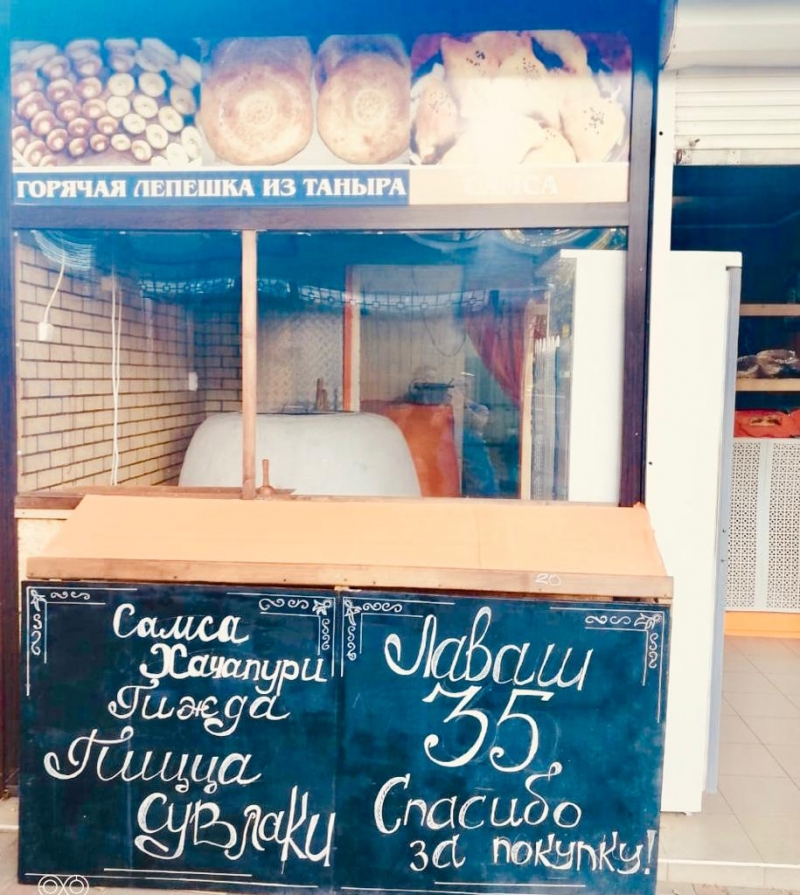 ГОРЯЧАЯ ЛЕПЕШКА ИЗ ТАНЫРА
САМСА
20
Самса
Хачапури
Гижда
Пицца
Сувлаки
Лаваш
35
Спасибо
за покупку!